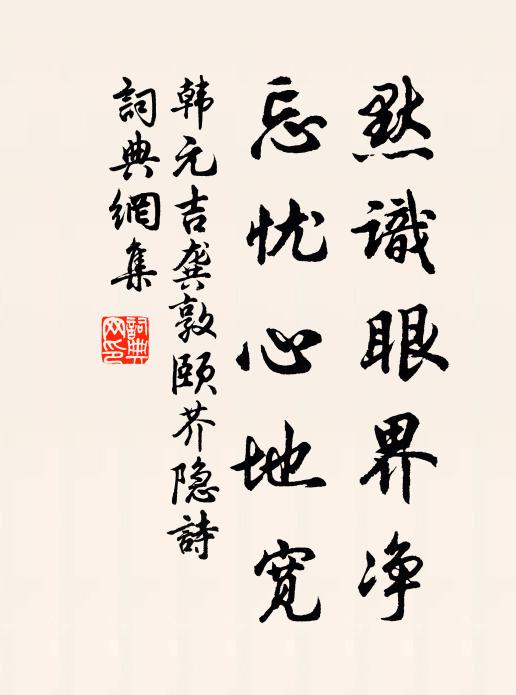 默識眼界净
忘忧心地寬
韩元吉龚敦颐芥隐詩
詞典網集
詞典网印